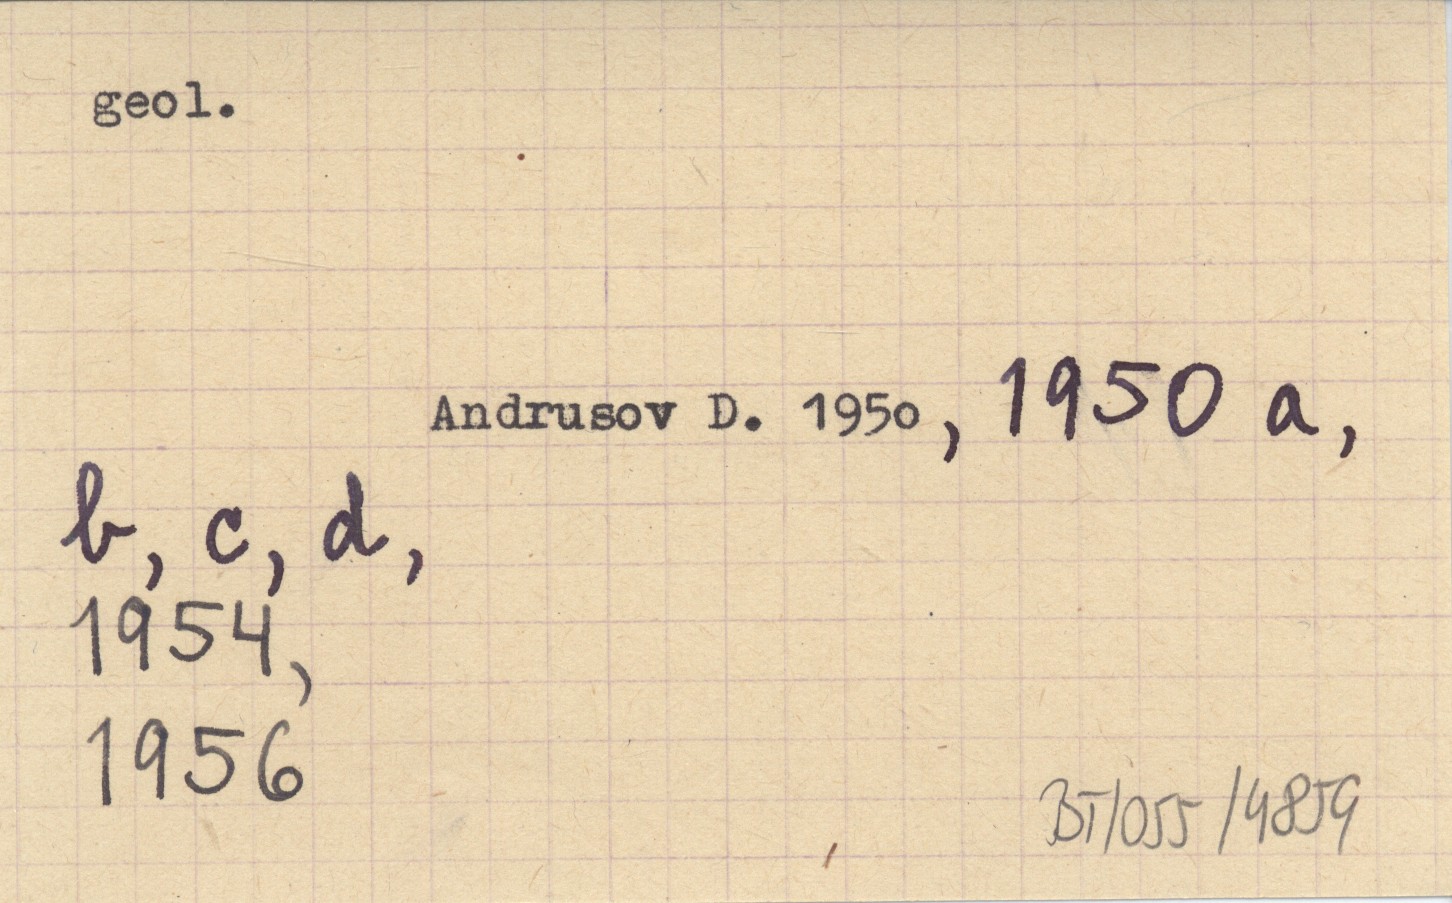 geol.
Andrusov D. 195o, 1950 a,
b, c, d,
1954,
1956
BT/055/4859